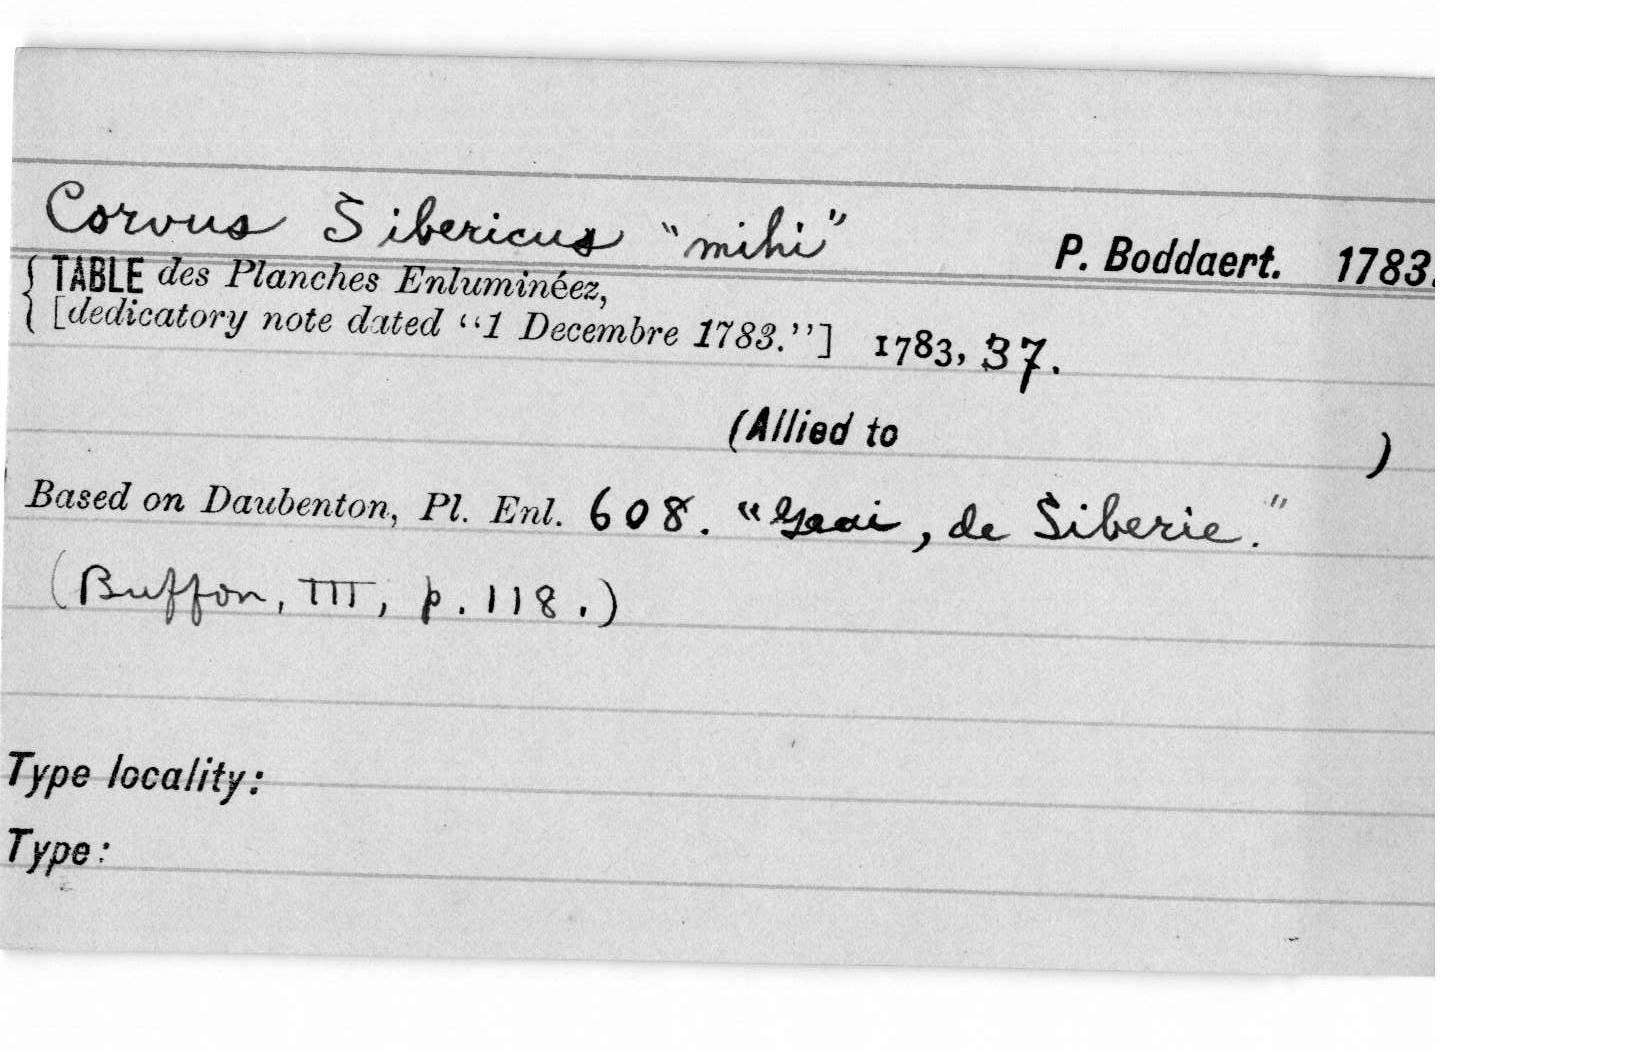 Corvus Sibericus "mihi" P. Boddaert. 1783.
{ TABLE des Planches Enluminéez,
{ [dedicatory note dated "1 Decembre 1783."] 1783, 37.
(Allied to )
Based on Daubenton, Pl. Enl. 608. "Geai, de Siberie."
(Buffon, III, p. 118.)
Type locality:
Type: